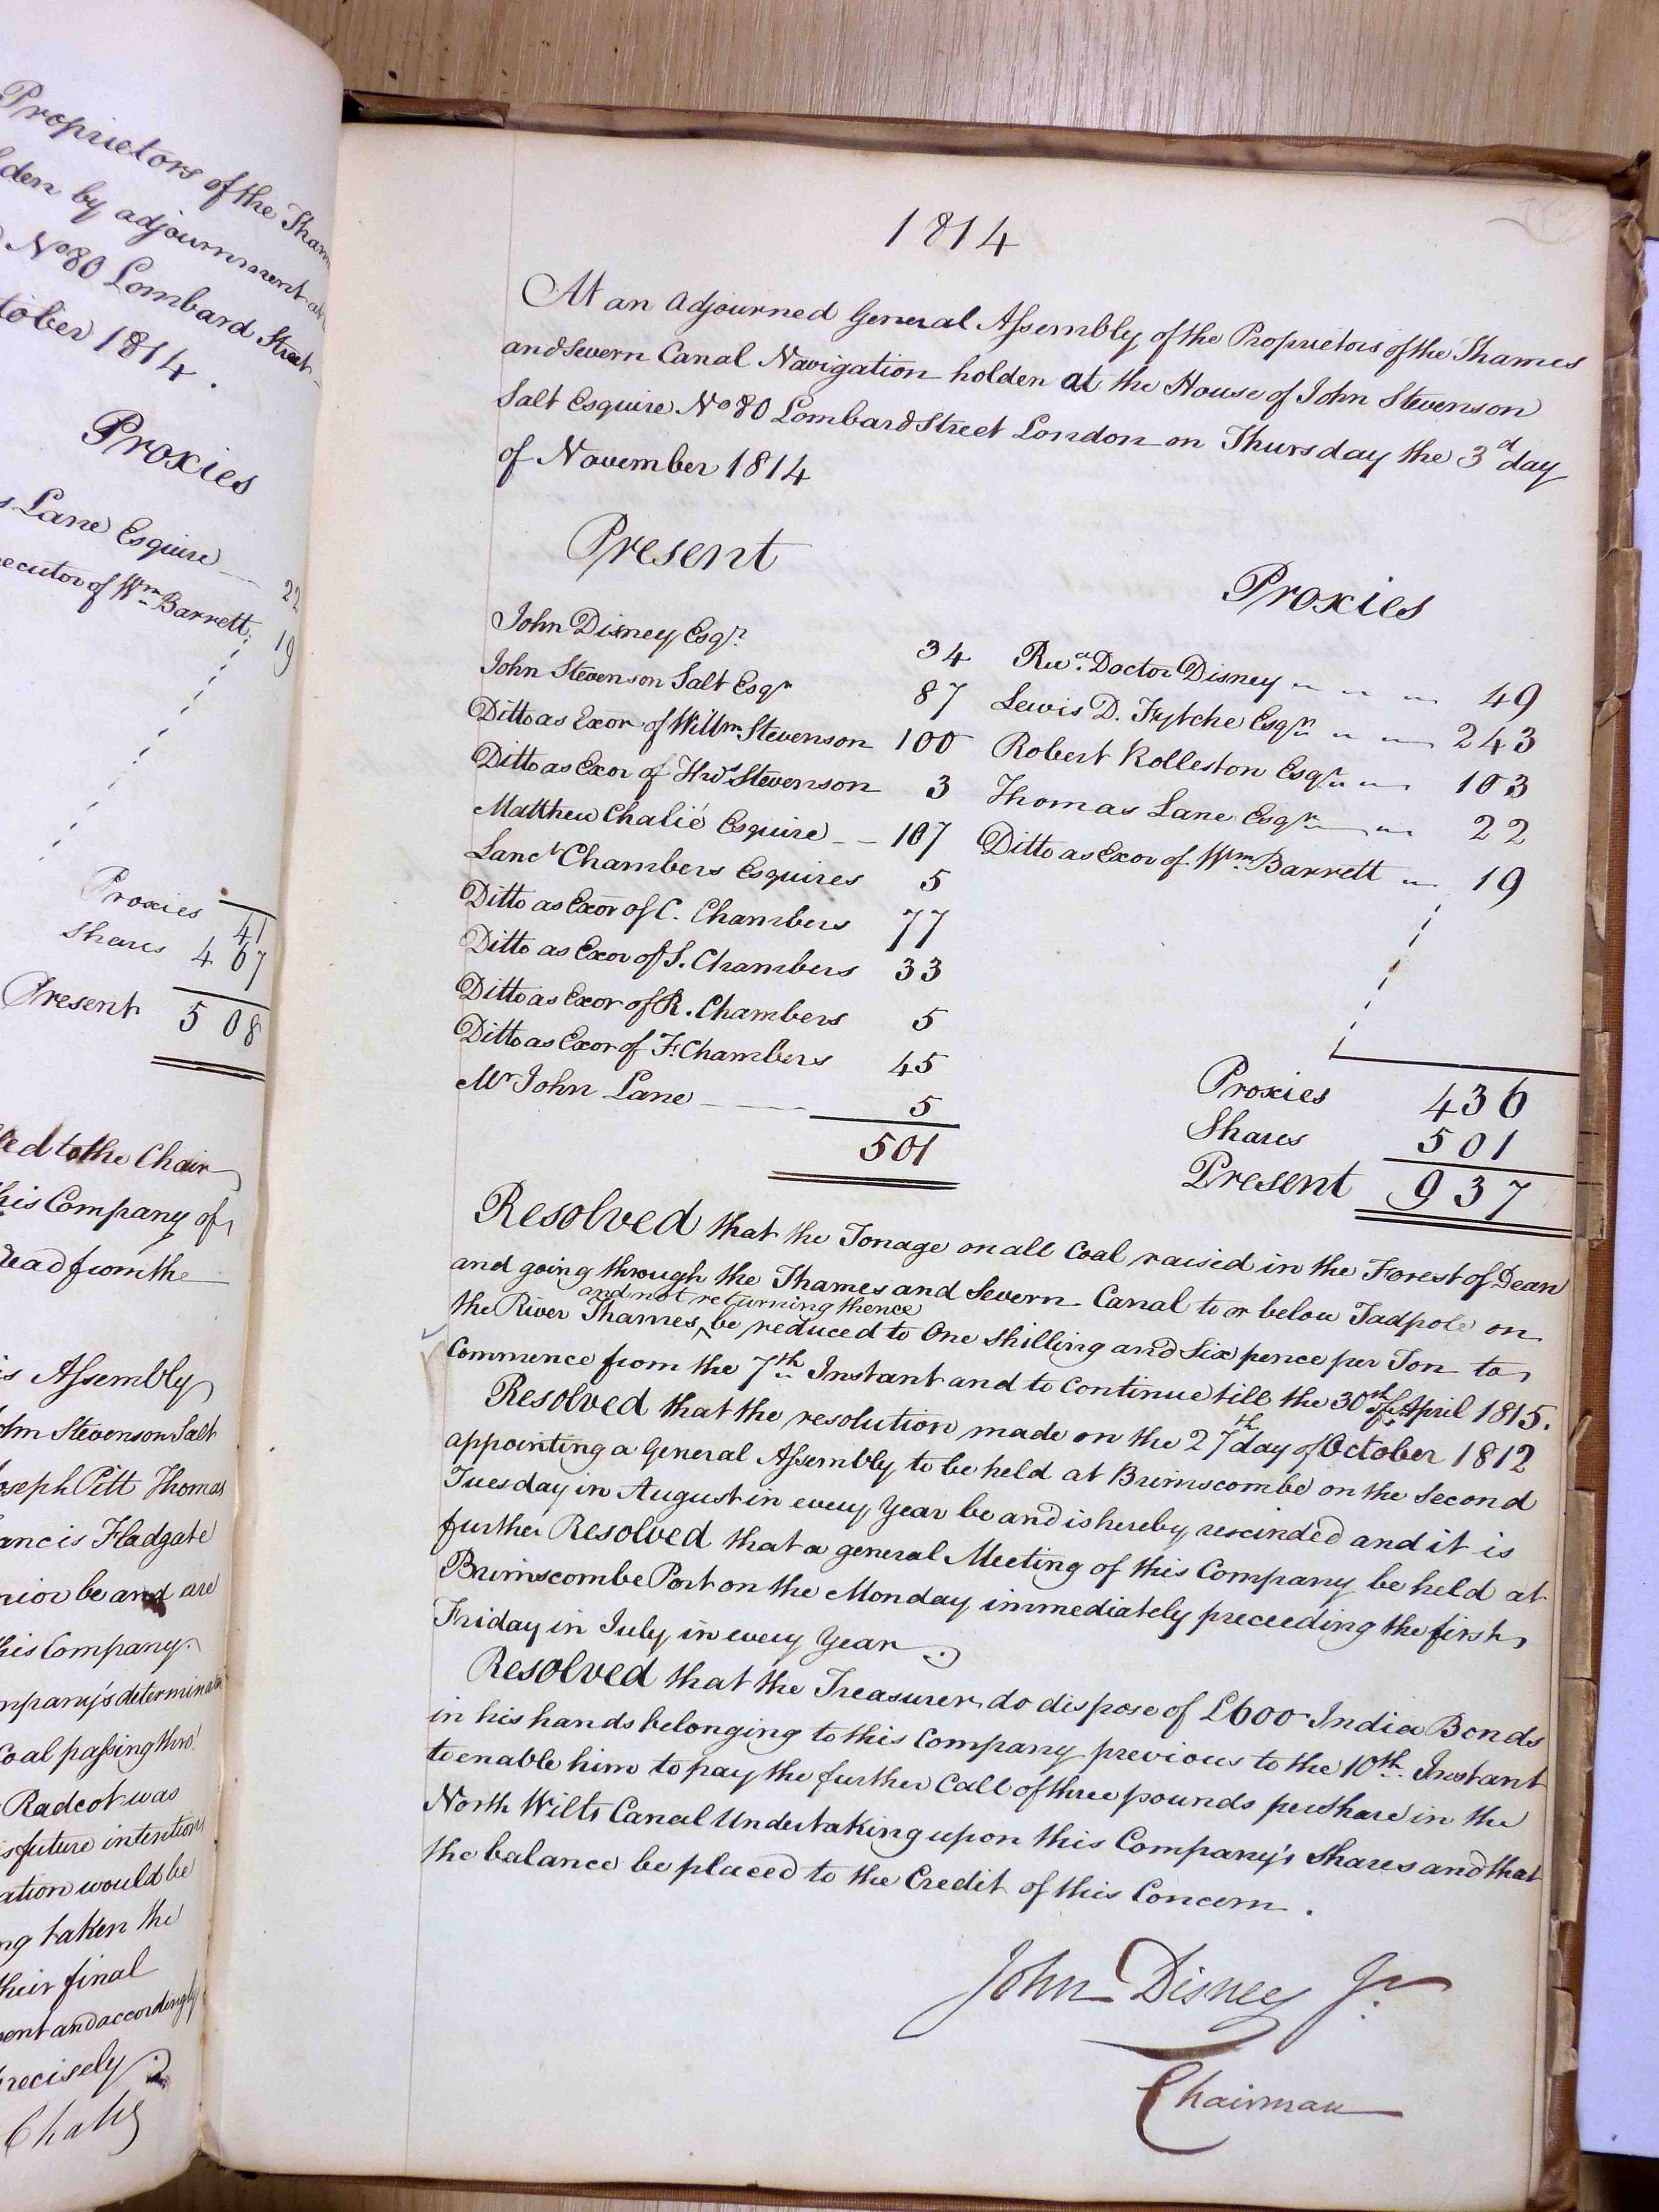 Proprietors of the Tham
lden by adjournment at
No 80 Lombard Street
tober 1814.
Proxies
s Lane Esquire 22
ecutor of Wm Barrett 19
Proxies 41
Shares 467
Present 508
led to the Chair
his Company of
read from the
is Assembly
ohn Stevenson Salt
oseph Pitt Thomas
ancis Hadgate
nior be and are
his Company.
mpany's determina
Coal passing thro'
Radcot was
is future intention
ation would be
ng taken the
their final
ent and accordingly
recisely
1814
At an adjourned General Assembly of the Proprietors of the Thames
and Severn Canal Navigation holden at the House of John Stevenson
Salt Esquire No 80 Lombard Street London on Thursday the 3d day
of November 1814
Present
John Disney Esqr. 34
John Stevenson Salt Esqr 87
Ditto as Exor of Willm Stevenson 100
Ditto as Exor of Hws Stevenson 3
Matthew Chalié Esquire 107
Lanct Chambers Esquires 5
Ditto as Exor of C. Chambers 77
Ditto as Exor of S. Chambers 33
Ditto as Exor of R. Chambers 5
Ditto as Exor of F. Chambers 45
Mr John Lane 5
501
Proxies
Revd. Doctor Disney 49
Lewis D. Fytche Esqr 243
Robert Rolleston Esqr 103
Thomas Lane Esqr 22
Ditto as Exor of Wm Barrett 19
Proxies 436
Shares 501
Present 937
Resolved that the Tonage on all Coal raised in the Forest of Dean
and going through the Thames and Severn Canal to or below Tadpole on
and not returning thence
the River Thames, be reduced to One Shilling and Six pence per Ton to
Commence from the 7th Instant and to Continue till the 30th of April 1815.
Resolved that the resolution made on the 27th day of October 1812
appointing a General Assembly to be held at Brimscombe on the Second
Tuesday in August in every Year be and is hereby rescinded and it is
further Resolved that a general Meeting of this Company be held at
Brimscombe Port on the Monday immediately preceeding the first
Friday in July in every Year.
Resolved that the Treasurer do dispose of £600 India Bonds
in his hands belonging to this Company previous to the 10th. Instant
to enable him to pay the further Call of three pounds per Share in the
North Wilts Canal Undertaking upon this Company's Shares and that
the balance be placed to the Credit of this Concern.
John Disney Jr.
Chairman